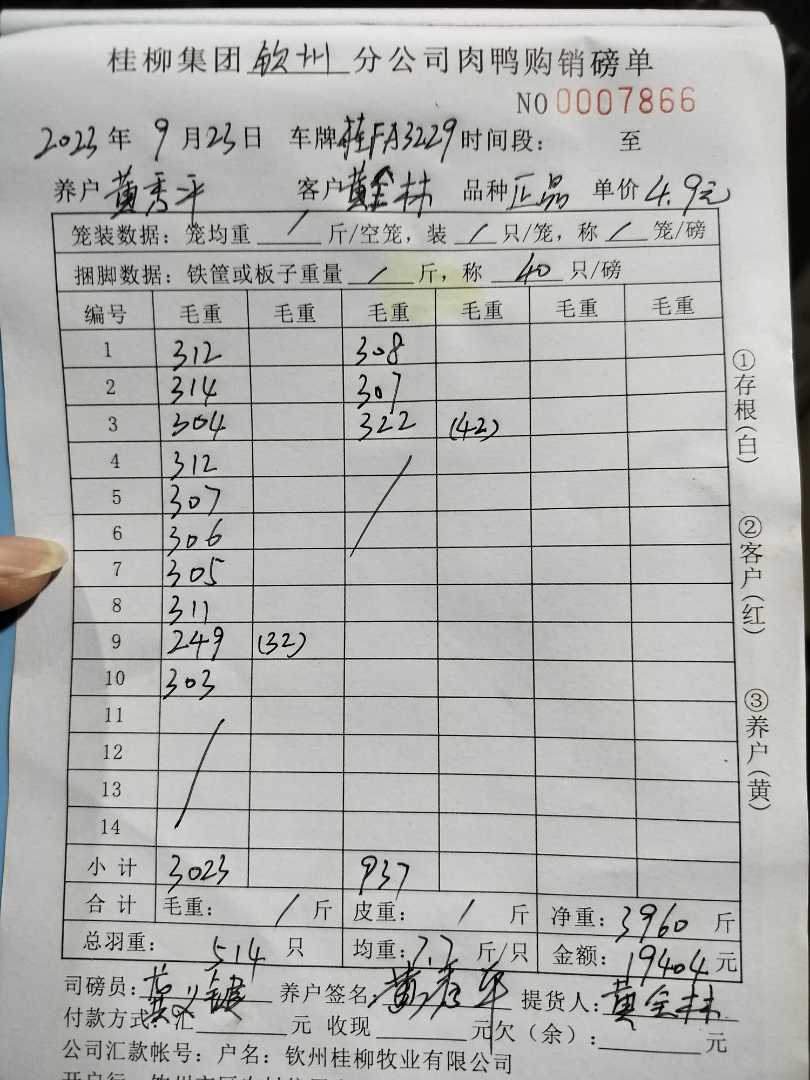 桂柳集团钦州分公司肉鸭购销磅单
NO 0007866
2023年9月23日 车牌桂FA3229 时间段: 至
养户黄秀平 客户黄金林 品种正品 单价4.9元
笼装数据:笼均重 / 斤/空笼,装 / 只/笼,称 / 笼/磅
捆脚数据:铁筐或板子重量 / 斤,称 40 只/磅
编号 毛重 毛重 毛重 毛重 毛重 毛重
1 312 308
2 314 307
3 304 322 (42)
4 312 /
5 307
6 306
7 305
8 311
9 249 (32)
10 303
11 /
12
13
14
小计 3023 937
合计 毛重: / 斤 皮重: / 斤 净重:3960 斤
总羽重: 514 只 均重:7.7 斤/只 金额:19404元
司磅员: 养户签名:黄秀平 提货人:黄金林
付款方式:汇 元 收现 元欠(余): 元
公司汇款帐号:户名:钦州桂柳牧业有限公司
①存根(白)
②客户(红)
③养户(黄)